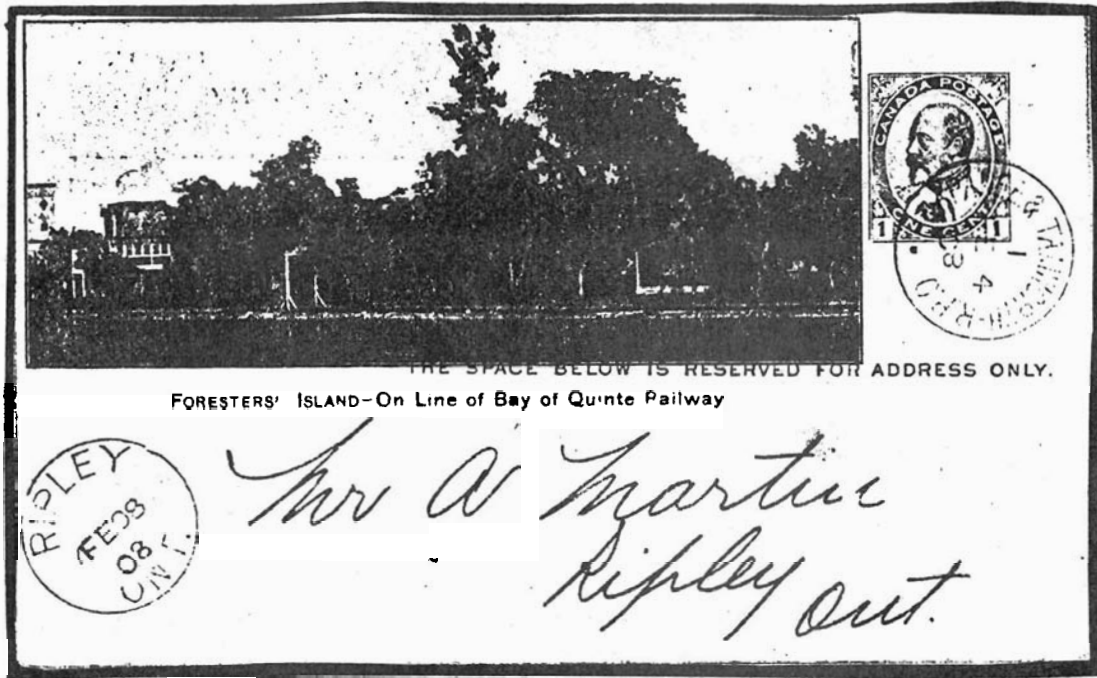 CANADA POSTAGE
ONE CENT
1 1
4
THE SPACE BELOW IS RESERVED FOR ADDRESS ONLY.
FORESTERS' ISLAND-On Line of Bay of Quinte Railway
RIPLEY
FE 08
08
ONT.
Mr A Martin
Ripley Ont.